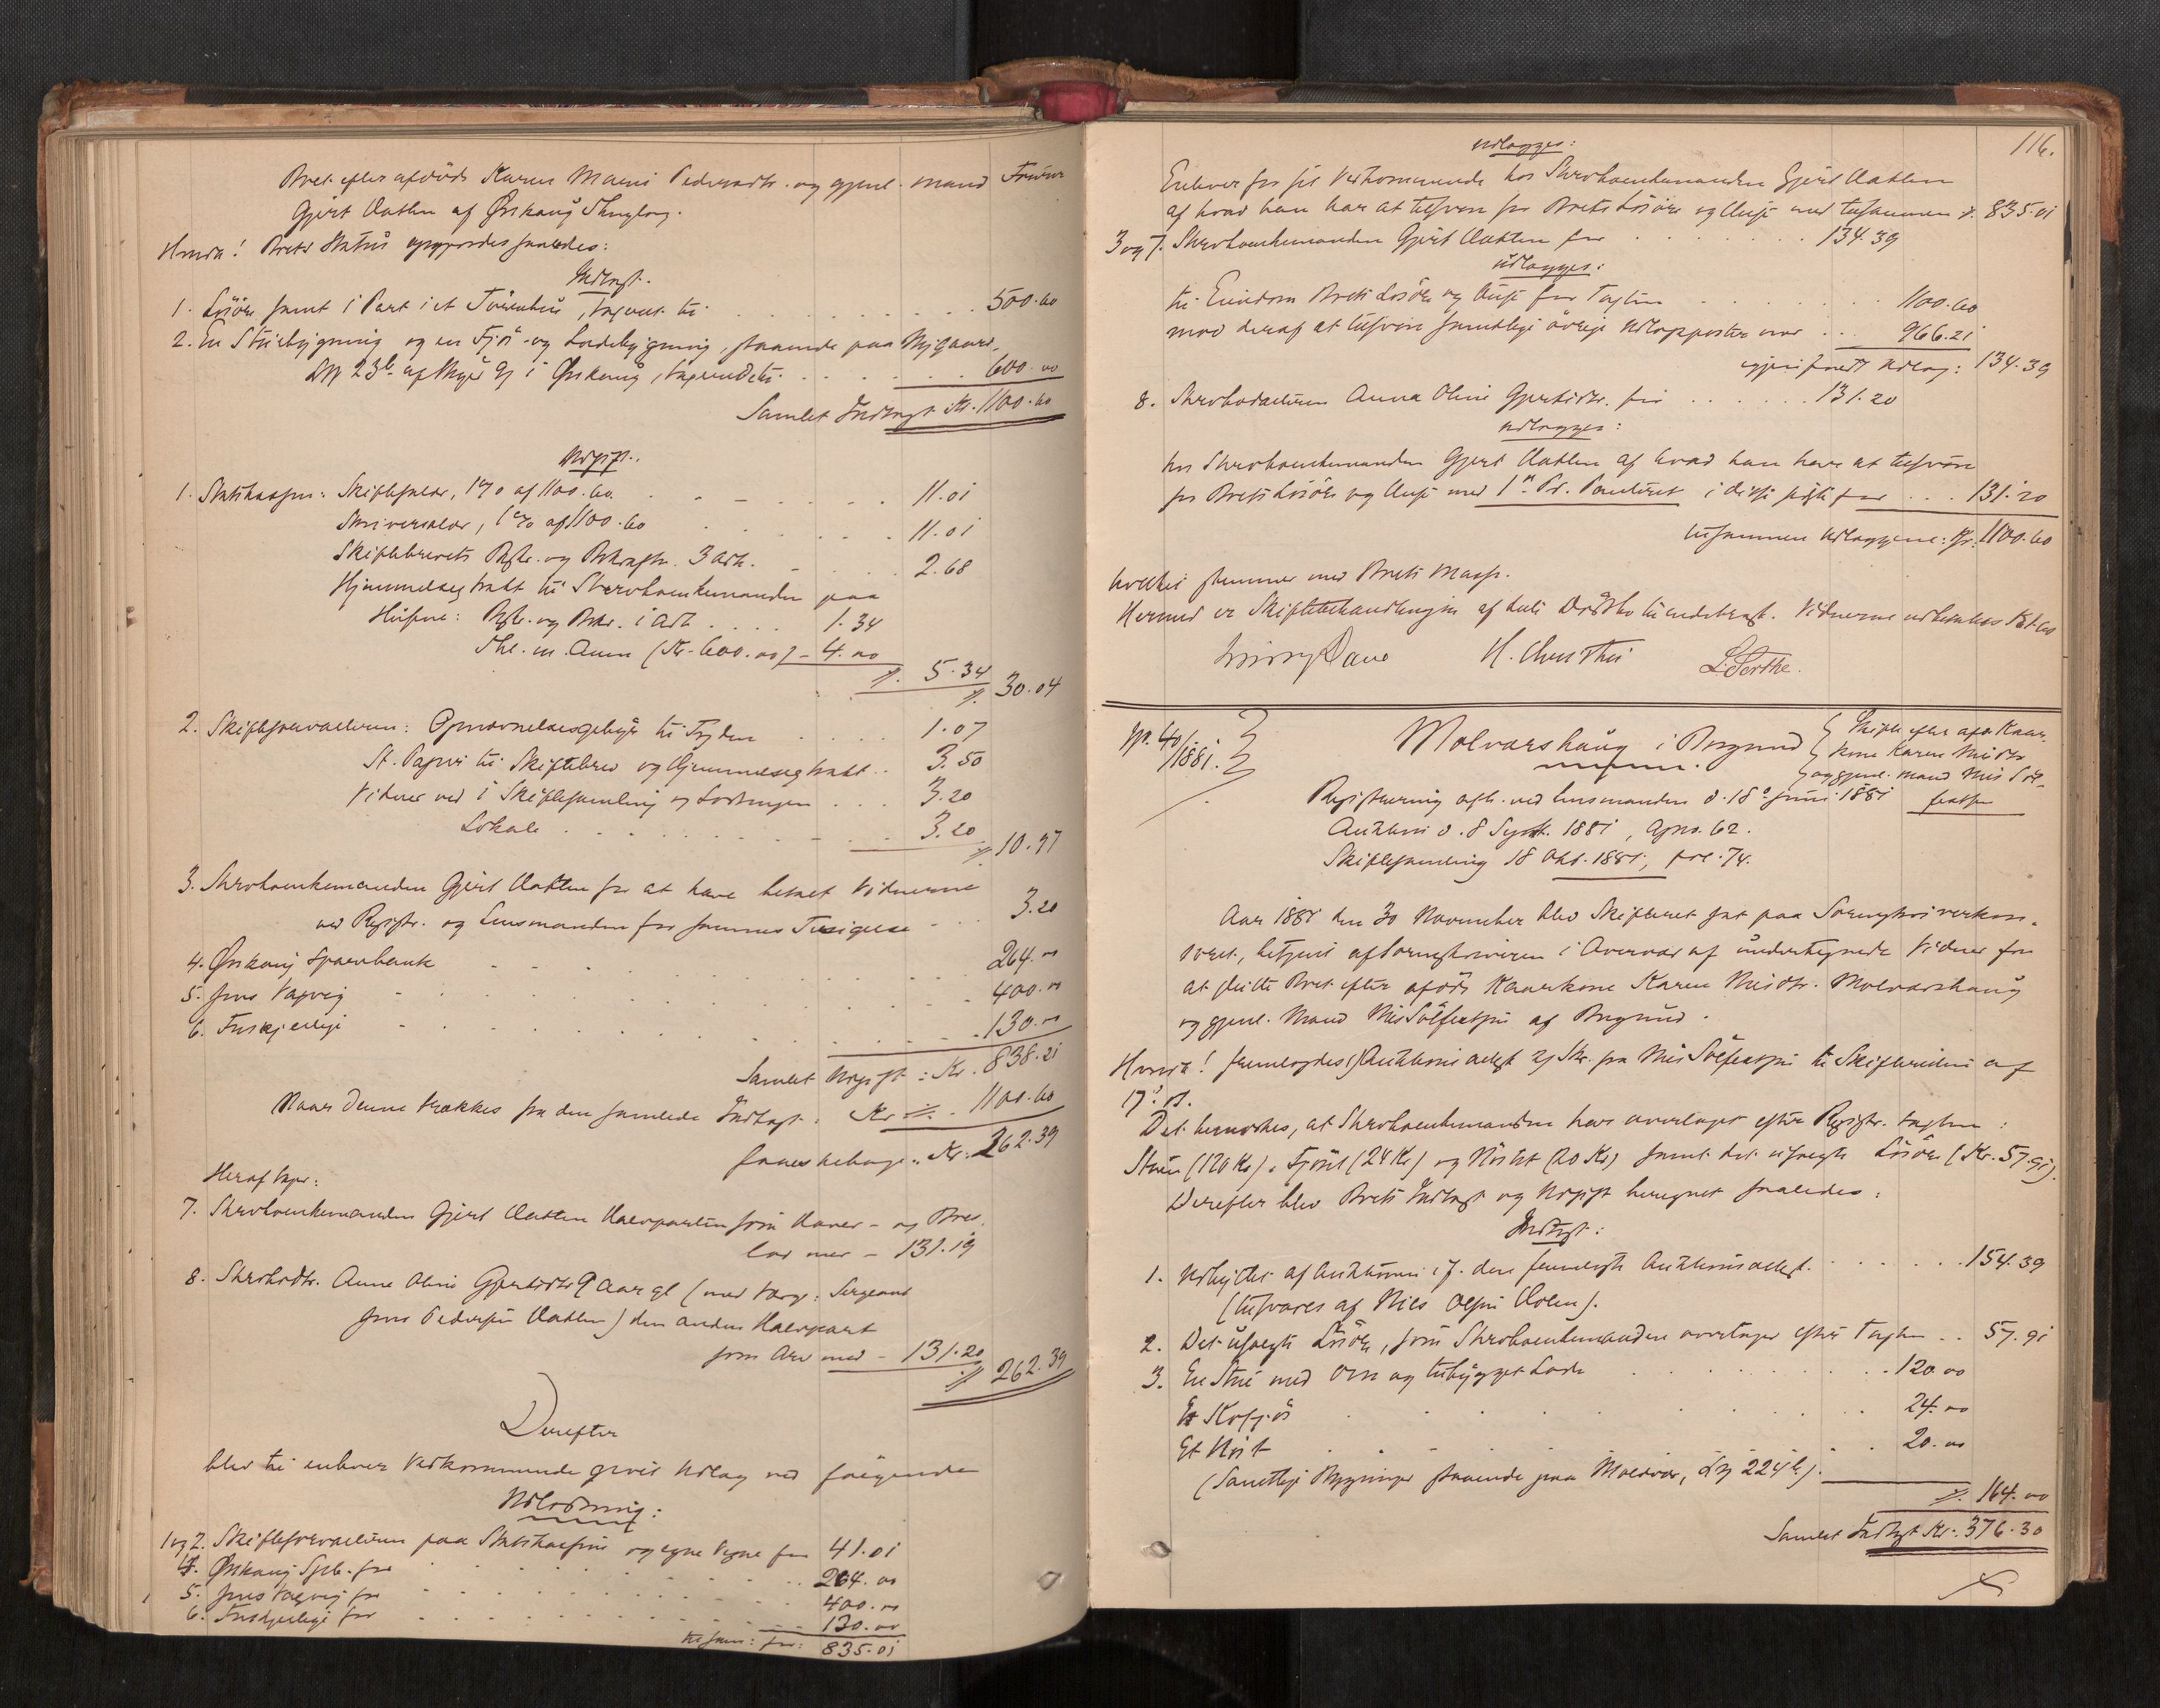 Boet efter afdøde Karen Marie Pedersdtr. og gjenl. mand
Gjert Vatten af Ørskoug Skuglag.
Hvorda! Boets Status opgjordes saaledes:
Indtægt.
1. Løsøre samt 1 Part i et, taxeret til . . . 500.60
2. En Stuebygning og en Fjøs- og Ladebygning, staaende paa Nygaard,
i Ørskoug, taxeret til . . . 600.00
Samlet Indtægt Kr. 1100.60
Udgift.
1. Statskassen: Skiftesalær, 1% af 1100.60 . . . 11.01
Skriversalær, 1% af 1100.60 . . . 11.01
Skiftebrevets Besk. og Bekræft. 3 Ark. . . . 2.68
Hjemmelsextrakt til Stervboenkemanden paa
Husene: Besk. og Bekr. 1 Ark . . . 1.34
(Kr. 600.00) - 4.00
5.34
30.04
2. Skifteforvalteren: Opnævnelsesgebyr til Fogden . . . 1.07
St. Papir til Skiftebrev og Hjemmelsextrakt . . 3.50
Vidner ved 1 Skiftesamling og Lodningen . . . 3.20
Lokale . . . 3.20
10.97
3. Stervboenkemanden Gjert Vatten for at have betalt Vidnerne
ved Registr. og Lensmanden for sammes . . . 3.20
4. Ørskoug Sparebank . . . 264.00
5. Jens Vagvig . . . 400.00
6. . . . 130.00
Samlet Udgift: Kr. 838.21
Naar denne trækkes fra den samlede Indtægt: Kr. 1100.60
faaes tilbage: Kr. 262.39
Heraf tager:
7. Stervboenkemanden Gjert Vatten Halvparten som Haver- og Bos-
lod med - 131.19
8. Stervbodtr. Anne Oline Gjertsdtr 9 Aar gl (med Værge: Sergeant
Jens Pedersen Vatten) den anden Halvpart
som Arv med - 131.20
262.39
Derefter
blev til enhver Vedkommende givet Udlæg ved følgende
Udlodning:
1 og 2. Skifteforvalteren paa Statskassens og egne Vegne for 41.01
4. Ørskoug Spb. for . . . 264.00
5. Jens Vagvig for . . . 400.00
6. for . . . 130.00
tilsam: for: 835.01
116.
udlægges:
Enhver for sit Vedkommende hos Stervboenkemanden Gjert Vatten
af hvad han har at tilsvare for Boets Løsøre og Huse med tilsammen 835.01
3 og 7. Stervboenkemanden Gjert Vatten for . . . 134.39
udlægges:
til Eiendom Boets Løsøre og Huse for Taxten . . . 1100.60
mod deraf at tilsvare samtlige øvrige Udlægsposter med . . . 966.21
igjen som eget Udlæg: 134.39
8. Stervbodatteren Anna Oline Gjertsdtr. for . . . 131.20
udlægges:
hos Stervboenkemanden Gjert Vatten af hvad han har at tilsvare
for Boets Løsøre og Huse med 1ste Pr. Panteret i disse sidste for . . . 131.20
tilsammen udlæggene: Kr. 1100.60
hvilket stemmer med Boets Masse.
Hermed er Skiftebehandlingen af dette Dødsbo tilendebragt. Vidnerne
H. Christie
No. 40/1881.
Molværshaug i Borgund
Skifte efter afd. Kaar-
kone Karen Nilsdtr
og gjenl. mand Nils Søl-
festsen
Registrering afh. ved lensmanden d. 18de Juni 1881
Auktion d. 8 Septb. 1881, 62.
Skiftesamling 18 Okt. 1881, fol. 74.
Aar 1881 den 30 November blev Skifteret sat paa Sorenskriverkon-
toret, betjent af Sorenskriveren i Overvær af undertegnede Vidner for
at slutte Boet efter afdøde Kaarkone Karen Nilsdtr. Molværshaug
og gjenl. Mand Nils Sølfestsen af Borgund.
Hvorda! fremlagdes 1) Auktionsudtog 2) Skr. fra Nils Sølfestsen til Skifteretten af
17 ds.
Det bemærkes, at Stervboenkemanden har overtaget efter Registr. taxten:
Stuen (120 Kr), Fjøset (24 Kr) og Nøstet (20 Kr) samt det usolgte Løsøre (Kr. 57.91).
Derefter blev Boets Indtægt og Udgift beregnet saaledes:
Indtægt:
1. Udbyttet af Auktionen if. den fremlagte Auktionsudtog . . . 154.39
(tilsvares af Nils Olsen Holen).
2. Det usolgte Løsøre, som Stervboenkemanden overtager efter Taxten . . 57.91
3. En Stue med Ovn og tilbygget Lade . . . 120.00
Et Kofjøs . . . 24.00
Et Nøst . . . 20.00
(Samtlige Bygninger staaende paa Molvær, 224b).
164.00
Samlet Indtægt Kr. 376.30